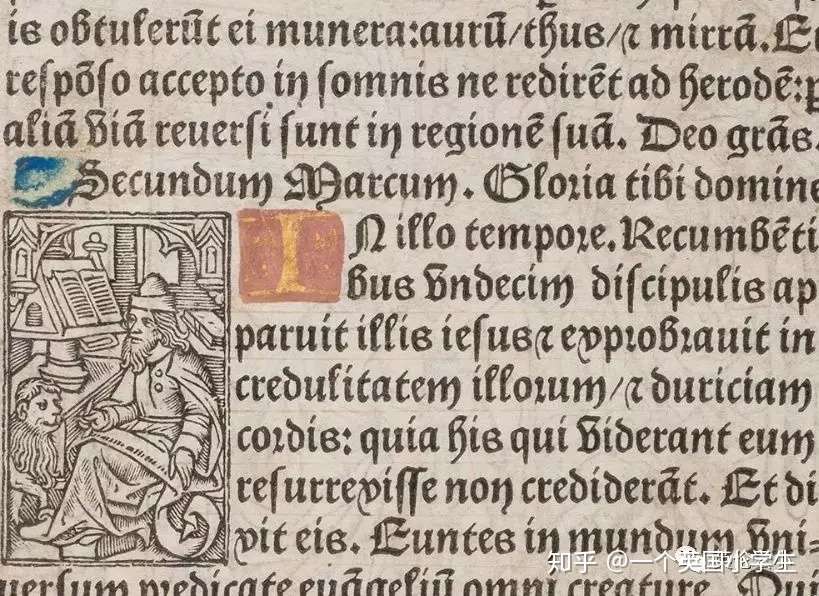 is obtulerũt ei munera:aurũ/thus/⁊ mirrã.Et
respõso accepto in somnis ne redirẽt ad herodẽ:p
aliã viã reuersi sunt in regionẽ suã. Deo grãs.
Secundum Marcum. Gloria tibi domine
IN illo tempore.Recumbẽti
bus vndecim discipulis ap
paruit illis iesus⁊ exprobrauit in
credulitatem illorum/⁊ duriciam
cordis: quia his qui viderant eum
resurrexisse non crediderãt. Et di
xit eis. Euntes in mundum vni-
uersum predicate euãgeliũ omni creature. Qui
知乎 @一个英国小学生